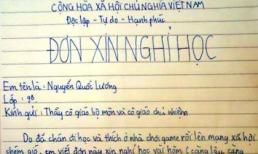 CỘNG HÒA XÃ HỘI CHỦ NGHĨA VIỆT NAM
Độc lập - Tự do - Hạnh phúc
ĐƠN XIN NGHỈ HỌC
Em tên là: Nguyễn Quốc Lương
Lớp: 9
Kính gửi: Thầy cô giáo bộ môn và cô giáo chủ nhiệm
Do đó chán đi học và thích ở nhà chơi game rồi lên mạng xã hội
chém gió, em viết đơn này xin nghỉ học vài hôm (càng lâu càng